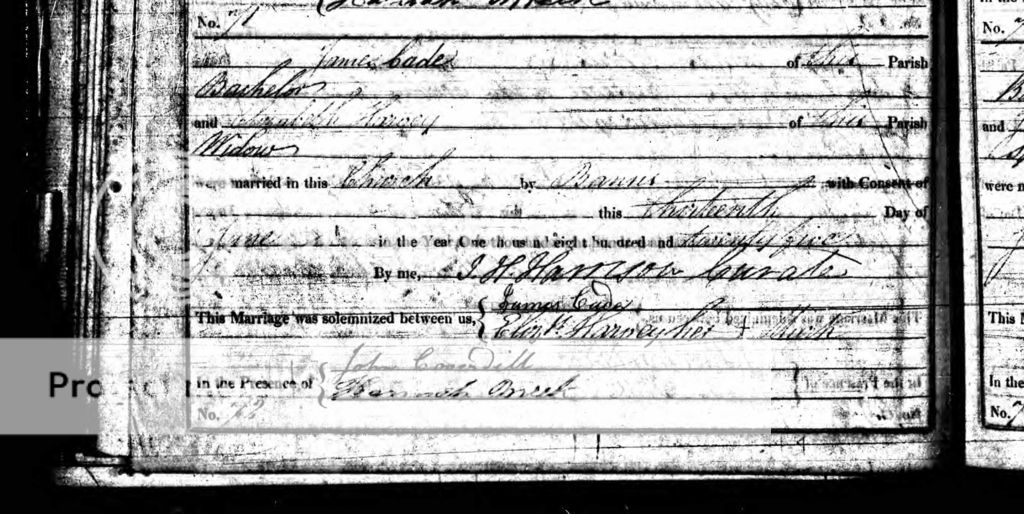 No. 71
James Eade of this Parish
Bachelor
and Elizabeth Harvey of this Parish
Widow
were married in this Church by Banns with Consent of
this thirteenth Day of
June in the Year One thousand eight hundred and twenty
By me, J. H. Harrison Curate
This Marriage was solemnized between us, James Eade
Elizth Harvey her + mark
In the Presence of John
Hannah
No. 72
No.
and
were m
This M
In the
No.